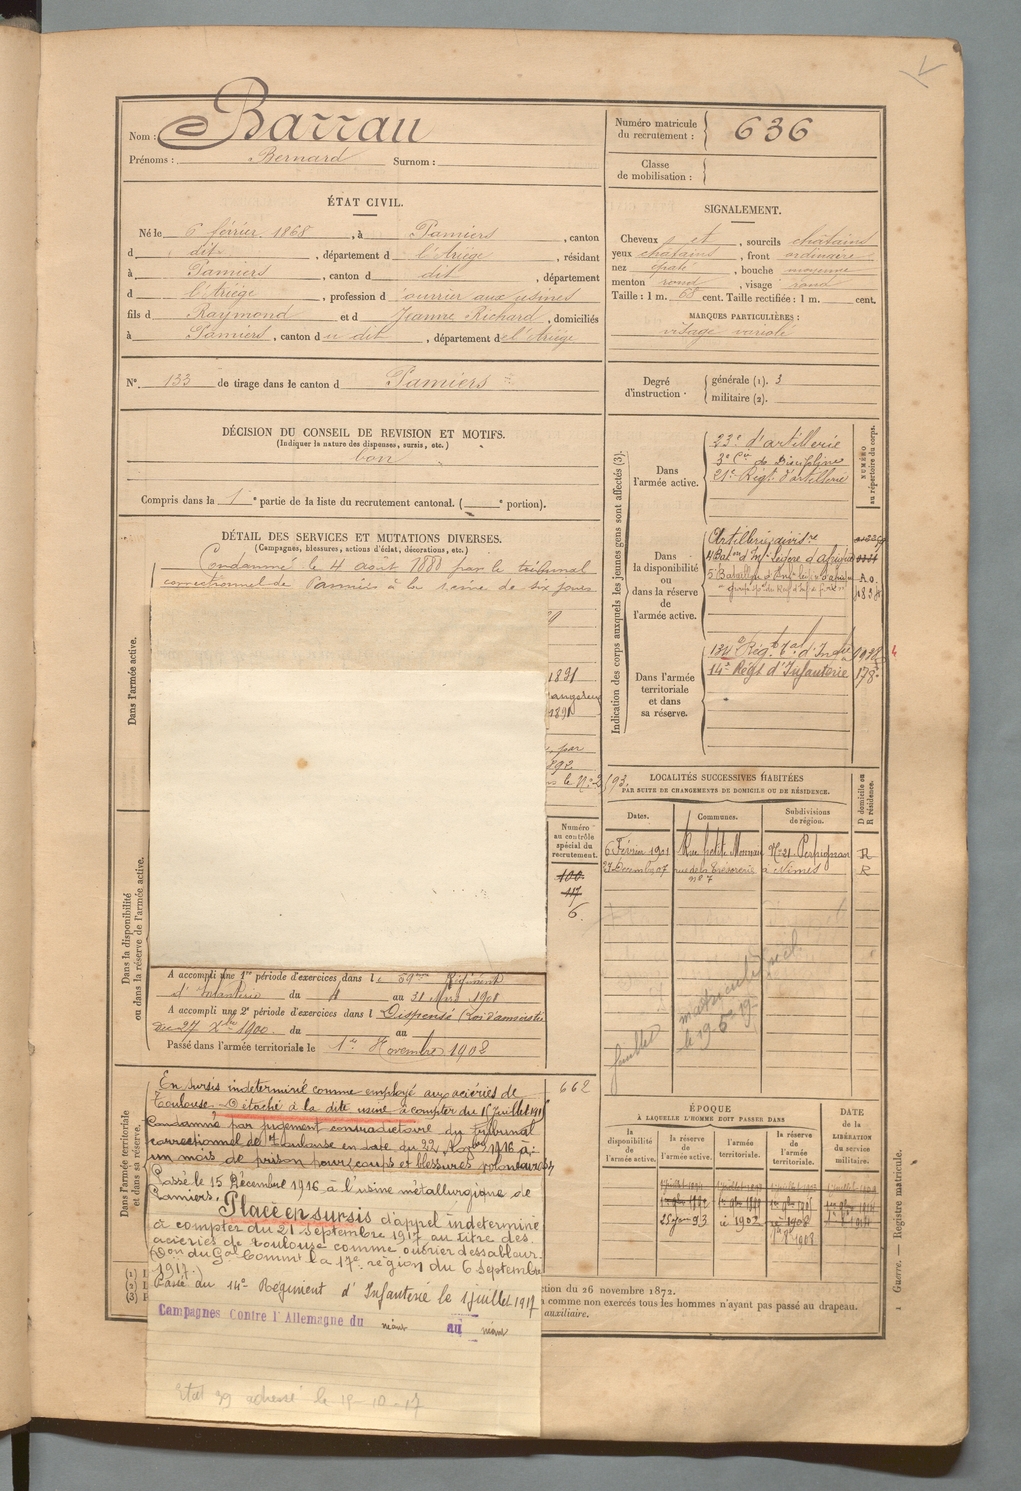 Nom : Barrau
Prénoms : Bernard Surnom :
ÉTAT CIVIL.
Né le 6 février 1868, à Pamiers, canton
d dit, département d l'Ariège, résidant
à Pamiers, canton d dit, département
d l'Ariège, profession d ouvrier aux usines
fils d Raymond et d Jeanne Richard, domiciliés
à Pamiers, canton d u dit, département de l'Ariège
N° 133 de tirage dans le canton d Pamiers
DÉCISION DU CONSEIL DE REVISION ET MOTIFS.
(Indiquer la nature des dispenses, sursis, etc.)
bon
Compris dans la 1e partie de la liste du recrutement cantonal. ( e portion).
DÉTAIL DES SERVICES ET MUTATIONS DIVERSES.
(Campagnes, blessures, actions d'éclat, décorations, etc.)
Dans l'armée active.
Condamné le 4 août 1888 par le tribunal
correctionnel de Pamiers à la peine de six jours
1891
1891
par
1892
le N° 2/93
Dans la disponibilité
ou dans la réserve de l'armée active.
Numéro
au contrôle
spécial du
recrutement.
100
117
6.
A accompli une 1re période d'exercices dans le 59ème Régiment
d'Infanterie du 4 au 31 Mars 1901
A accompli une 2e période d'exercices dans l Dispensé (Loi d'amnistie
du 27 Xbre 1900. du au
Passé dans l'armée territoriale le 1er Novembre 1902
Dans l'armée territoriale
et dans sa réserve.
662
En sursis indéterminé comme employé aux aciéries de
Toulouse. Détaché à la dite usine à compter du 1 Juillet
Condamné par jugement contradictoire du tribunal
correctionnel de Toulouse en date du 22 1916 à
un mois de prison pour coups et blessures volontaires
Passé le 15 Décembre 1916 à l'usine métallurgique de
Pamiers. Placé en sursis d'appel indéterminé
à compter du 21 septembre 1917 au titre des
aciéries de Toulouse comme ouvrier dessableur
(Don du Gal Commt la 17e région du 6 Septembre
1917.)
Passé au 14e Régiment d'Infanterie le 1 juillet 1917
Campagnes Contre l'Allemagne du néant au néant
Etat 29 adressé le 19-10-17
Numéro matricule
du recrutement : 636
Classe
de mobilisation :
SIGNALEMENT.
Cheveux et, sourcils châtains
yeux châtains, front ordinaire
nez épaté, bouche moyenne
menton rond, visage rond
Taille : 1 m. 65 cent. Taille rectifiée : 1 m. cent.
MARQUES PARTICULIÈRES :
visage variolé
Degré
d'instruction
générale (1). 3
militaire (2).
Indication des corps auxquels les jeunes gens sont affectés (3).
NUMÉRO
au répertoire du corps.
Dans
l'armée active.
23e d'artillerie
3e Cie de Discipline
21e Régt d'artillerie
Dans
la disponibilité
ou
dans la réserve
de
l'armée active.
Artillerie
4e Baton d'Infie légère d'Afrique
5e Bataillon d'Infie légère d'Afrique
Dans l'armée
territoriale
et dans
sa réserve.
Régt tal d'Infie
14e Régt d'Infanterie 178
LOCALITÉS SUCCESSIVES HABITÉES
PAR SUITE DE CHANGEMENTS DE DOMICILE OU DE RÉSIDENCE.
D domicile ou
R résidence.
Dates. Communes. Subdivisions
de région.
6 Février 1901 Rue petite Monnaie No 21 Perpignan R
27 Décembre 07 rue de la Trésorerie à Nîmes R
no 7
feuillet matricule
le 19-5-19
ÉPOQUE
À LAQUELLE L'HOMME DOIT PASSER DANS
DATE
de la
LIBÉRATION
du
service
militaire.
la
disponibilité
de
l'armée active.
la
réserve de
l'armée active.
l'armée
territoriale.
la
réserve de
l'armée
territoriale.
25 93 1902 1908
1908
ction du 26 novembre 1872.
comme non exercés tous les hommes n'ayant pas passé au drapeau.
auxiliaire.
(1)
(2)
(3)
1 Guerre. — Registre matricule.